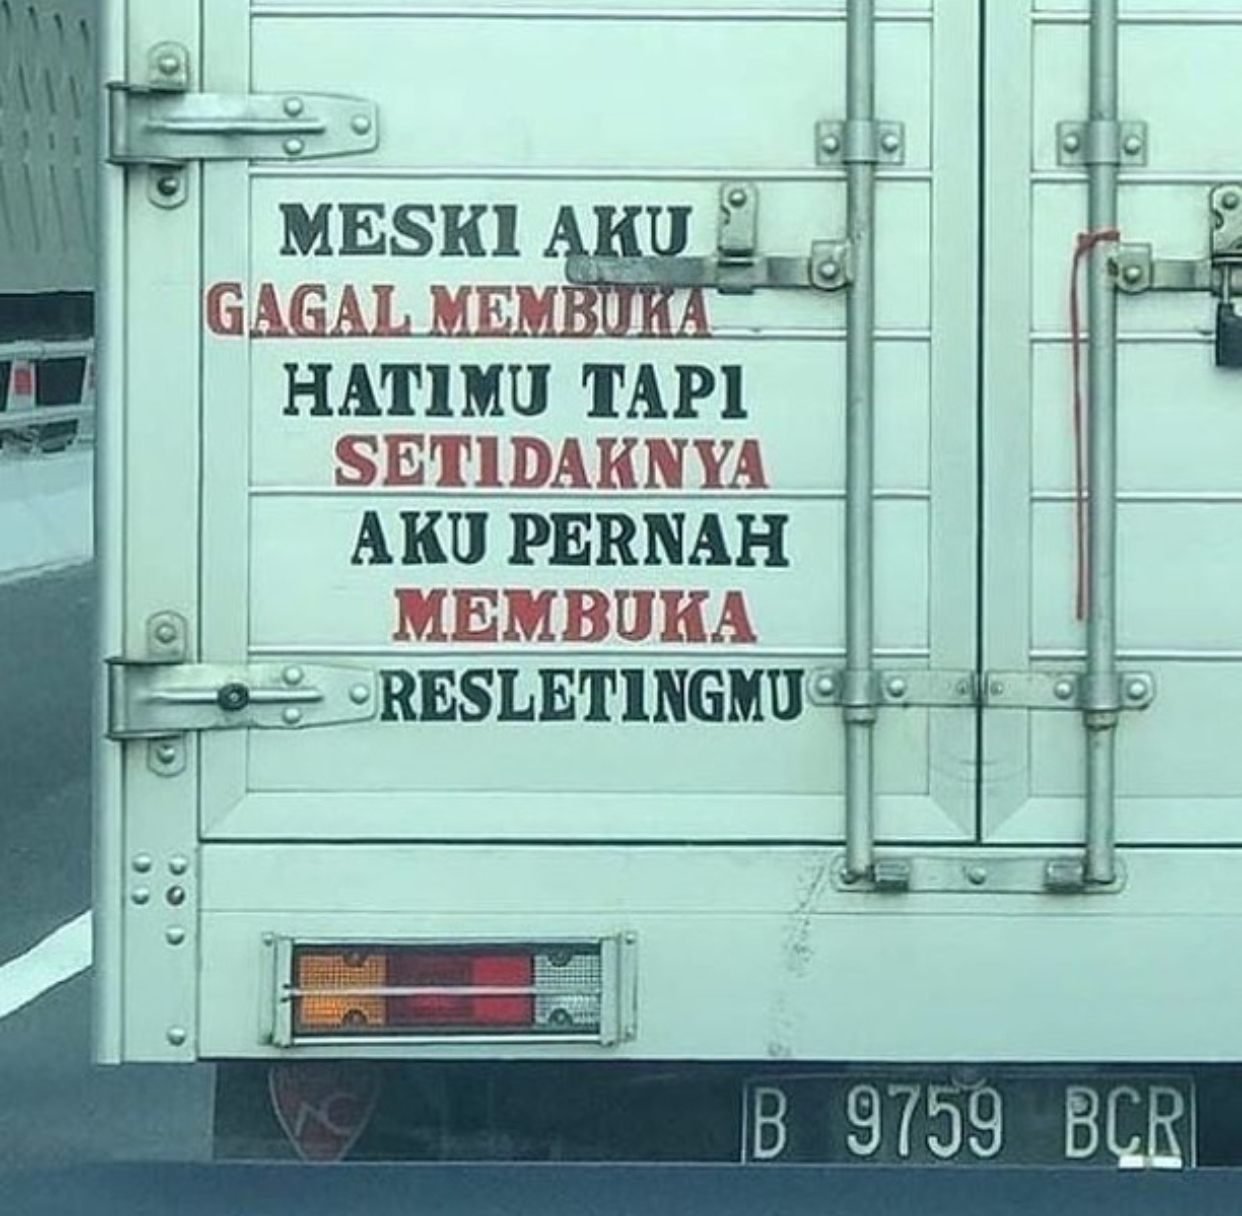 MESKI AKU
GAGAL MEMBUKA
HATIMU TAPI
SETIDAKNYA
AKU PERNAH
MEMBUKA
RESLETINGMU
B 9759 BCR